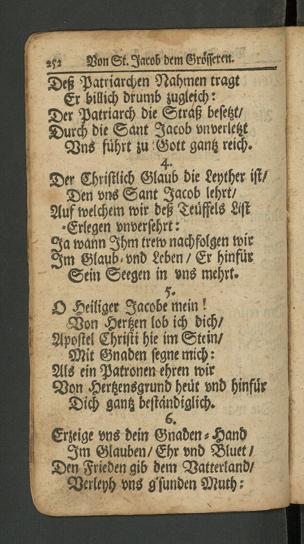 252 Von St. Jacob dem Grösseren.
Deß Patriarchen Nahmen tragt
Er billich drumb zugleich:
Der Patriarch die Straß besetzt/
Durch die Sant Jacob vnverletzt
Vns führt zu Gott gantz reich.
4.
Der Christlich Glaub die Leyther ist/
Den vns Sant Jacob lehrt/
Auf welchem wir deß Teüffels List
Erlegen vnversehrt:
Ja wann Ihm trew nachfolgen wir
Im Glaub- vnd Leben/ Er hinfür
Sein Seegen in vns mehrt.
5.
O Heiliger Jacobe mein!
Von Hertzen lob ich dich/
Apostel Christi hie im Stein/
Mit Gnaden segne mich:
Als ein Patronen ehren wir
Von Hertzensgrund heüt vnd hinfür
Dich gantz beständiglich.
6.
Erzeige vns dein Gnaden-Hand
Im Glauben/ Ehr vnd Bluet/
Den Frieden gib dem Vatterland/
Verleyh vns g'sunden Muth: